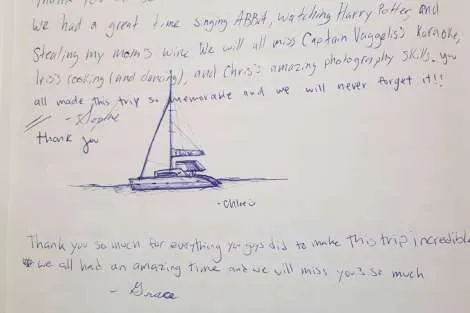 Thank you
We had a great time singing ABBA, watching Harry Potter, and
Stealing my mom's wine. We will all miss Captain Vaggelis's Karaoke,
Iris's cooking (and dancing), and Chris's amazing photography skills. you
all made this trip so memorable and we will never forget it!!
- Sophie
thank you
- Chloe
Thank you so much for everything you guys did to make this trip incredible
we all had an amazing time and we will miss you's so much
- Grace